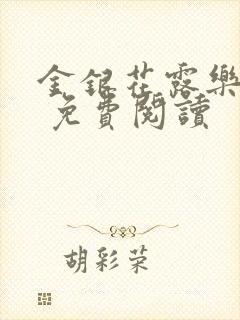 金銀花露樂
免費閱讀
胡彩荣